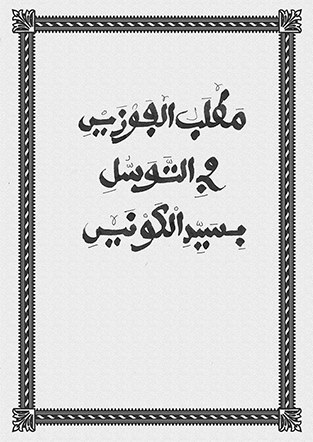 مَطْلَبُ الْفَوْزَيْنِ
فِي التَّوَسُّلِ
بِسَيِّدِ الْكَوْنَيْنِ